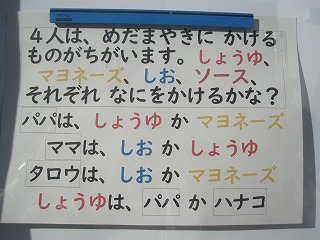 4人は、めだまやきに かける
ものがちがいます。しょうゆ、
マヨネーズ、しお、ソース、
それぞれ なにをかけるかな？
パパは、しょうゆ か マヨネーズ
ママは、しお か しょうゆ
タロウは、しお か マヨネーズ
しょうゆは、パパ か ハナコ